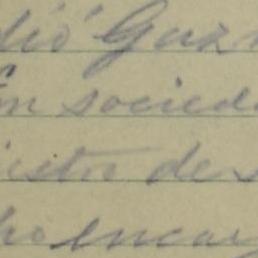 dió Guz
en socied
ista des
ho encar